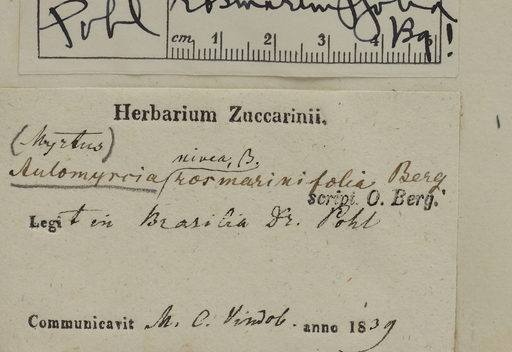 Pohl rosmarinifolia
cm. 1 2 3 4 Bg!
Herbarium Zuccarinii.
(Myrtus)
nivea, B.
Aulomyrcia rosmarinifolia Berg
scripf. O. Berg.
Legit in Brasilia Dr. Pohl
Communicavit M. C. Vindob. anno 1839